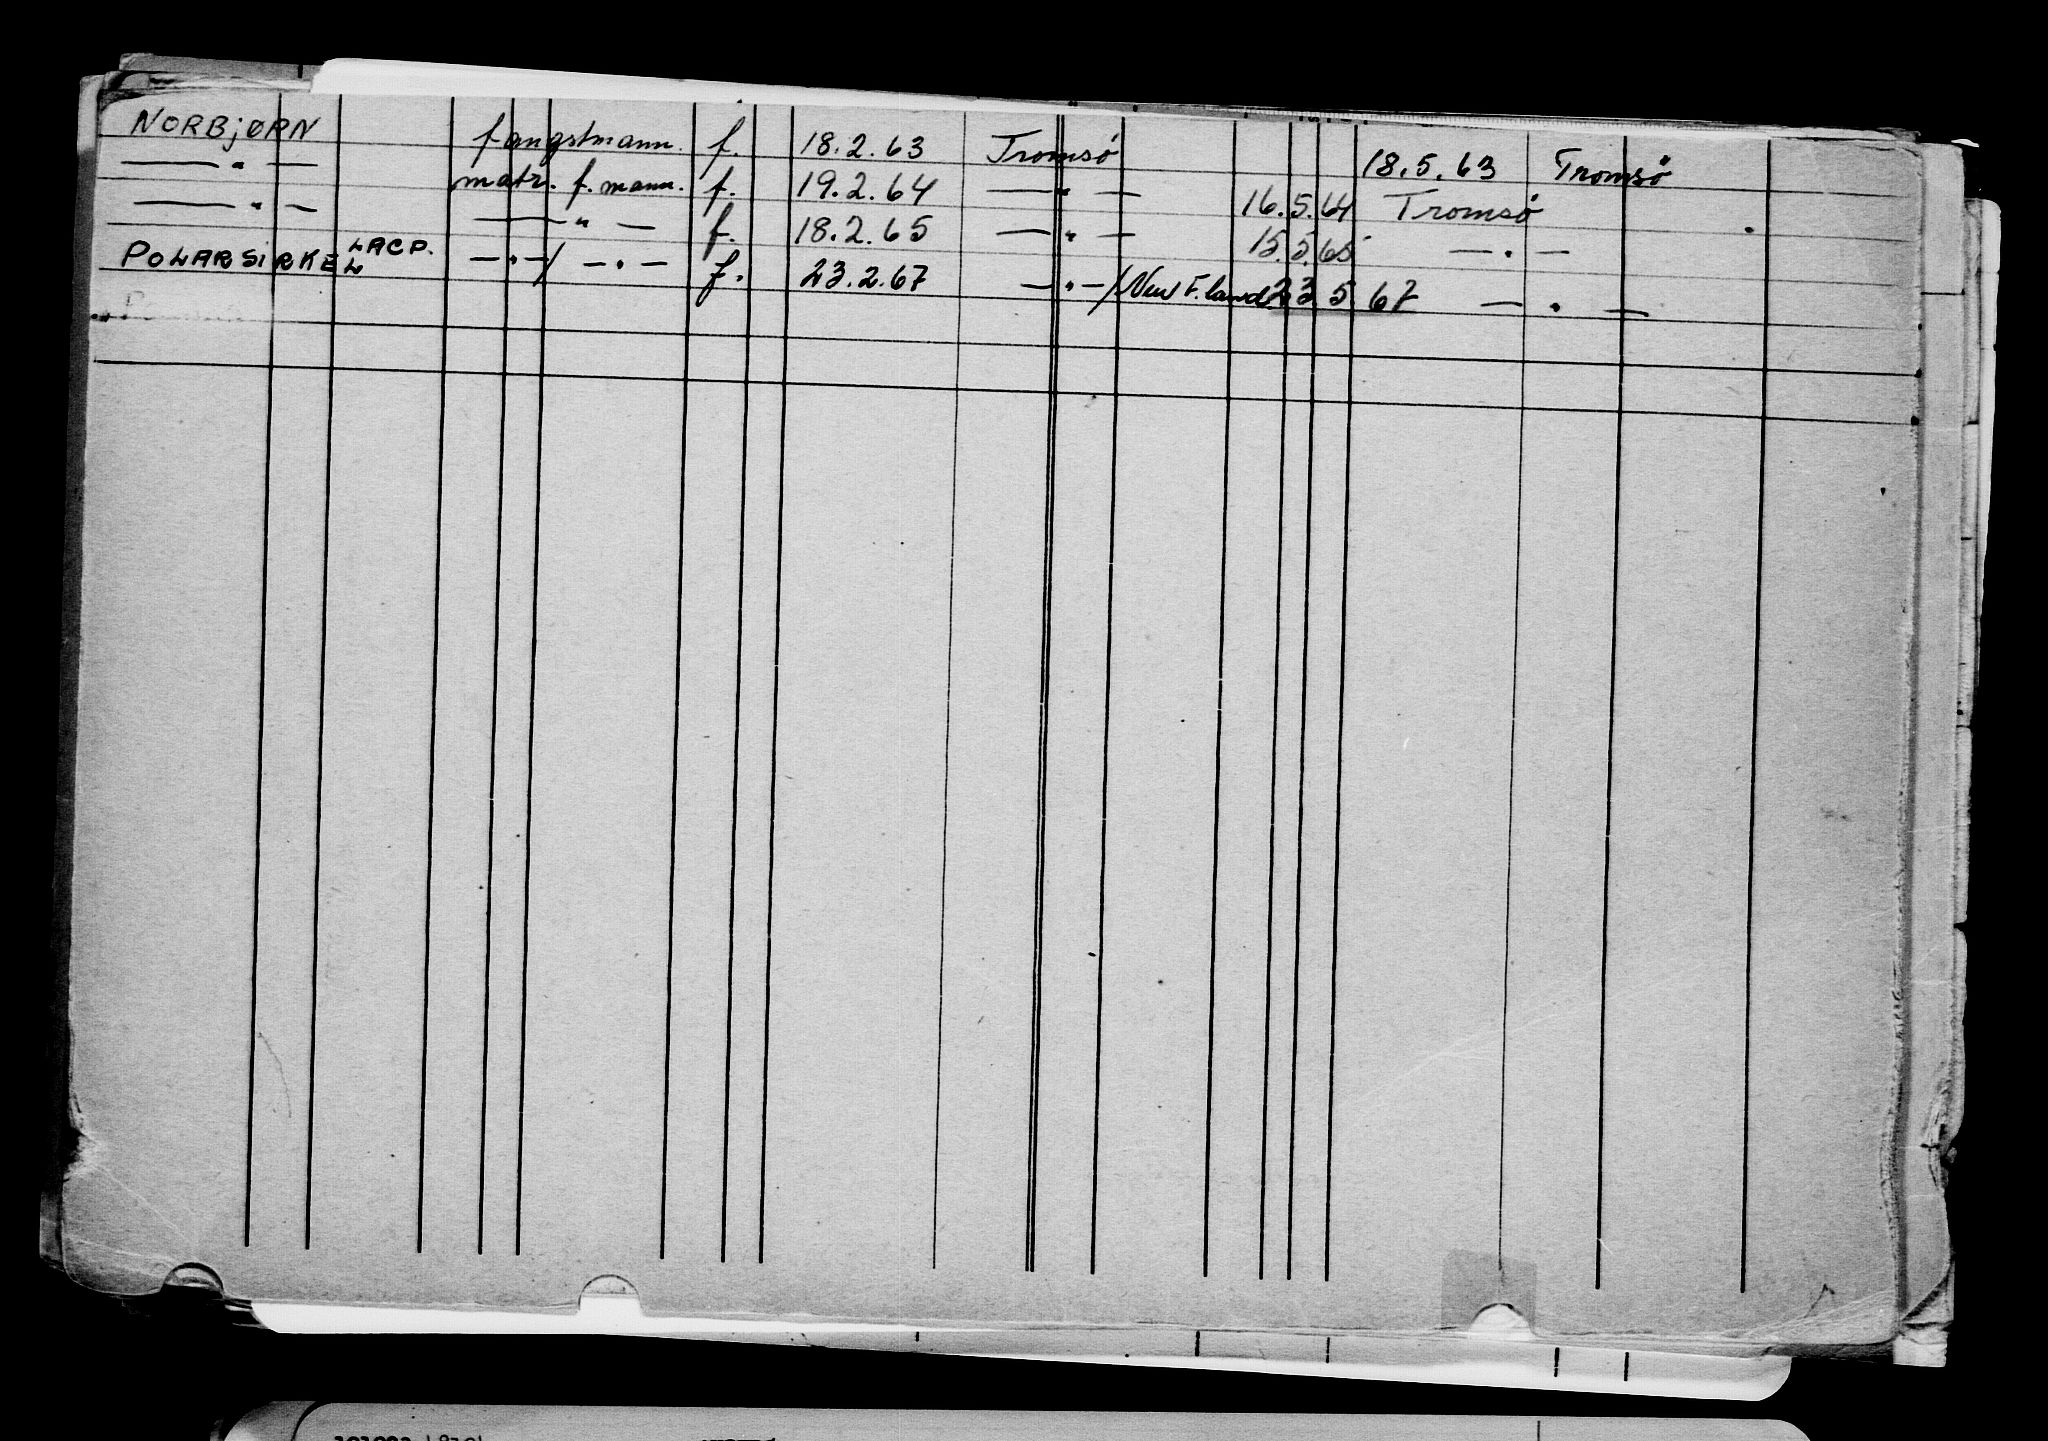 NORBJØRN fangstmann. f. 18.2.63 Tromsø 18.5.63 Tromsø
— " — matr. f. mann. f. 19.2.64 — " — 16.5.64 Tromsø
— " — — " — f. 18.2.65 — " — 15.5.65 — " —
POLARSIRKEL LACP. — " — / — " — f. 23.2.67 — " — / New F.land 23 5 67 — " —